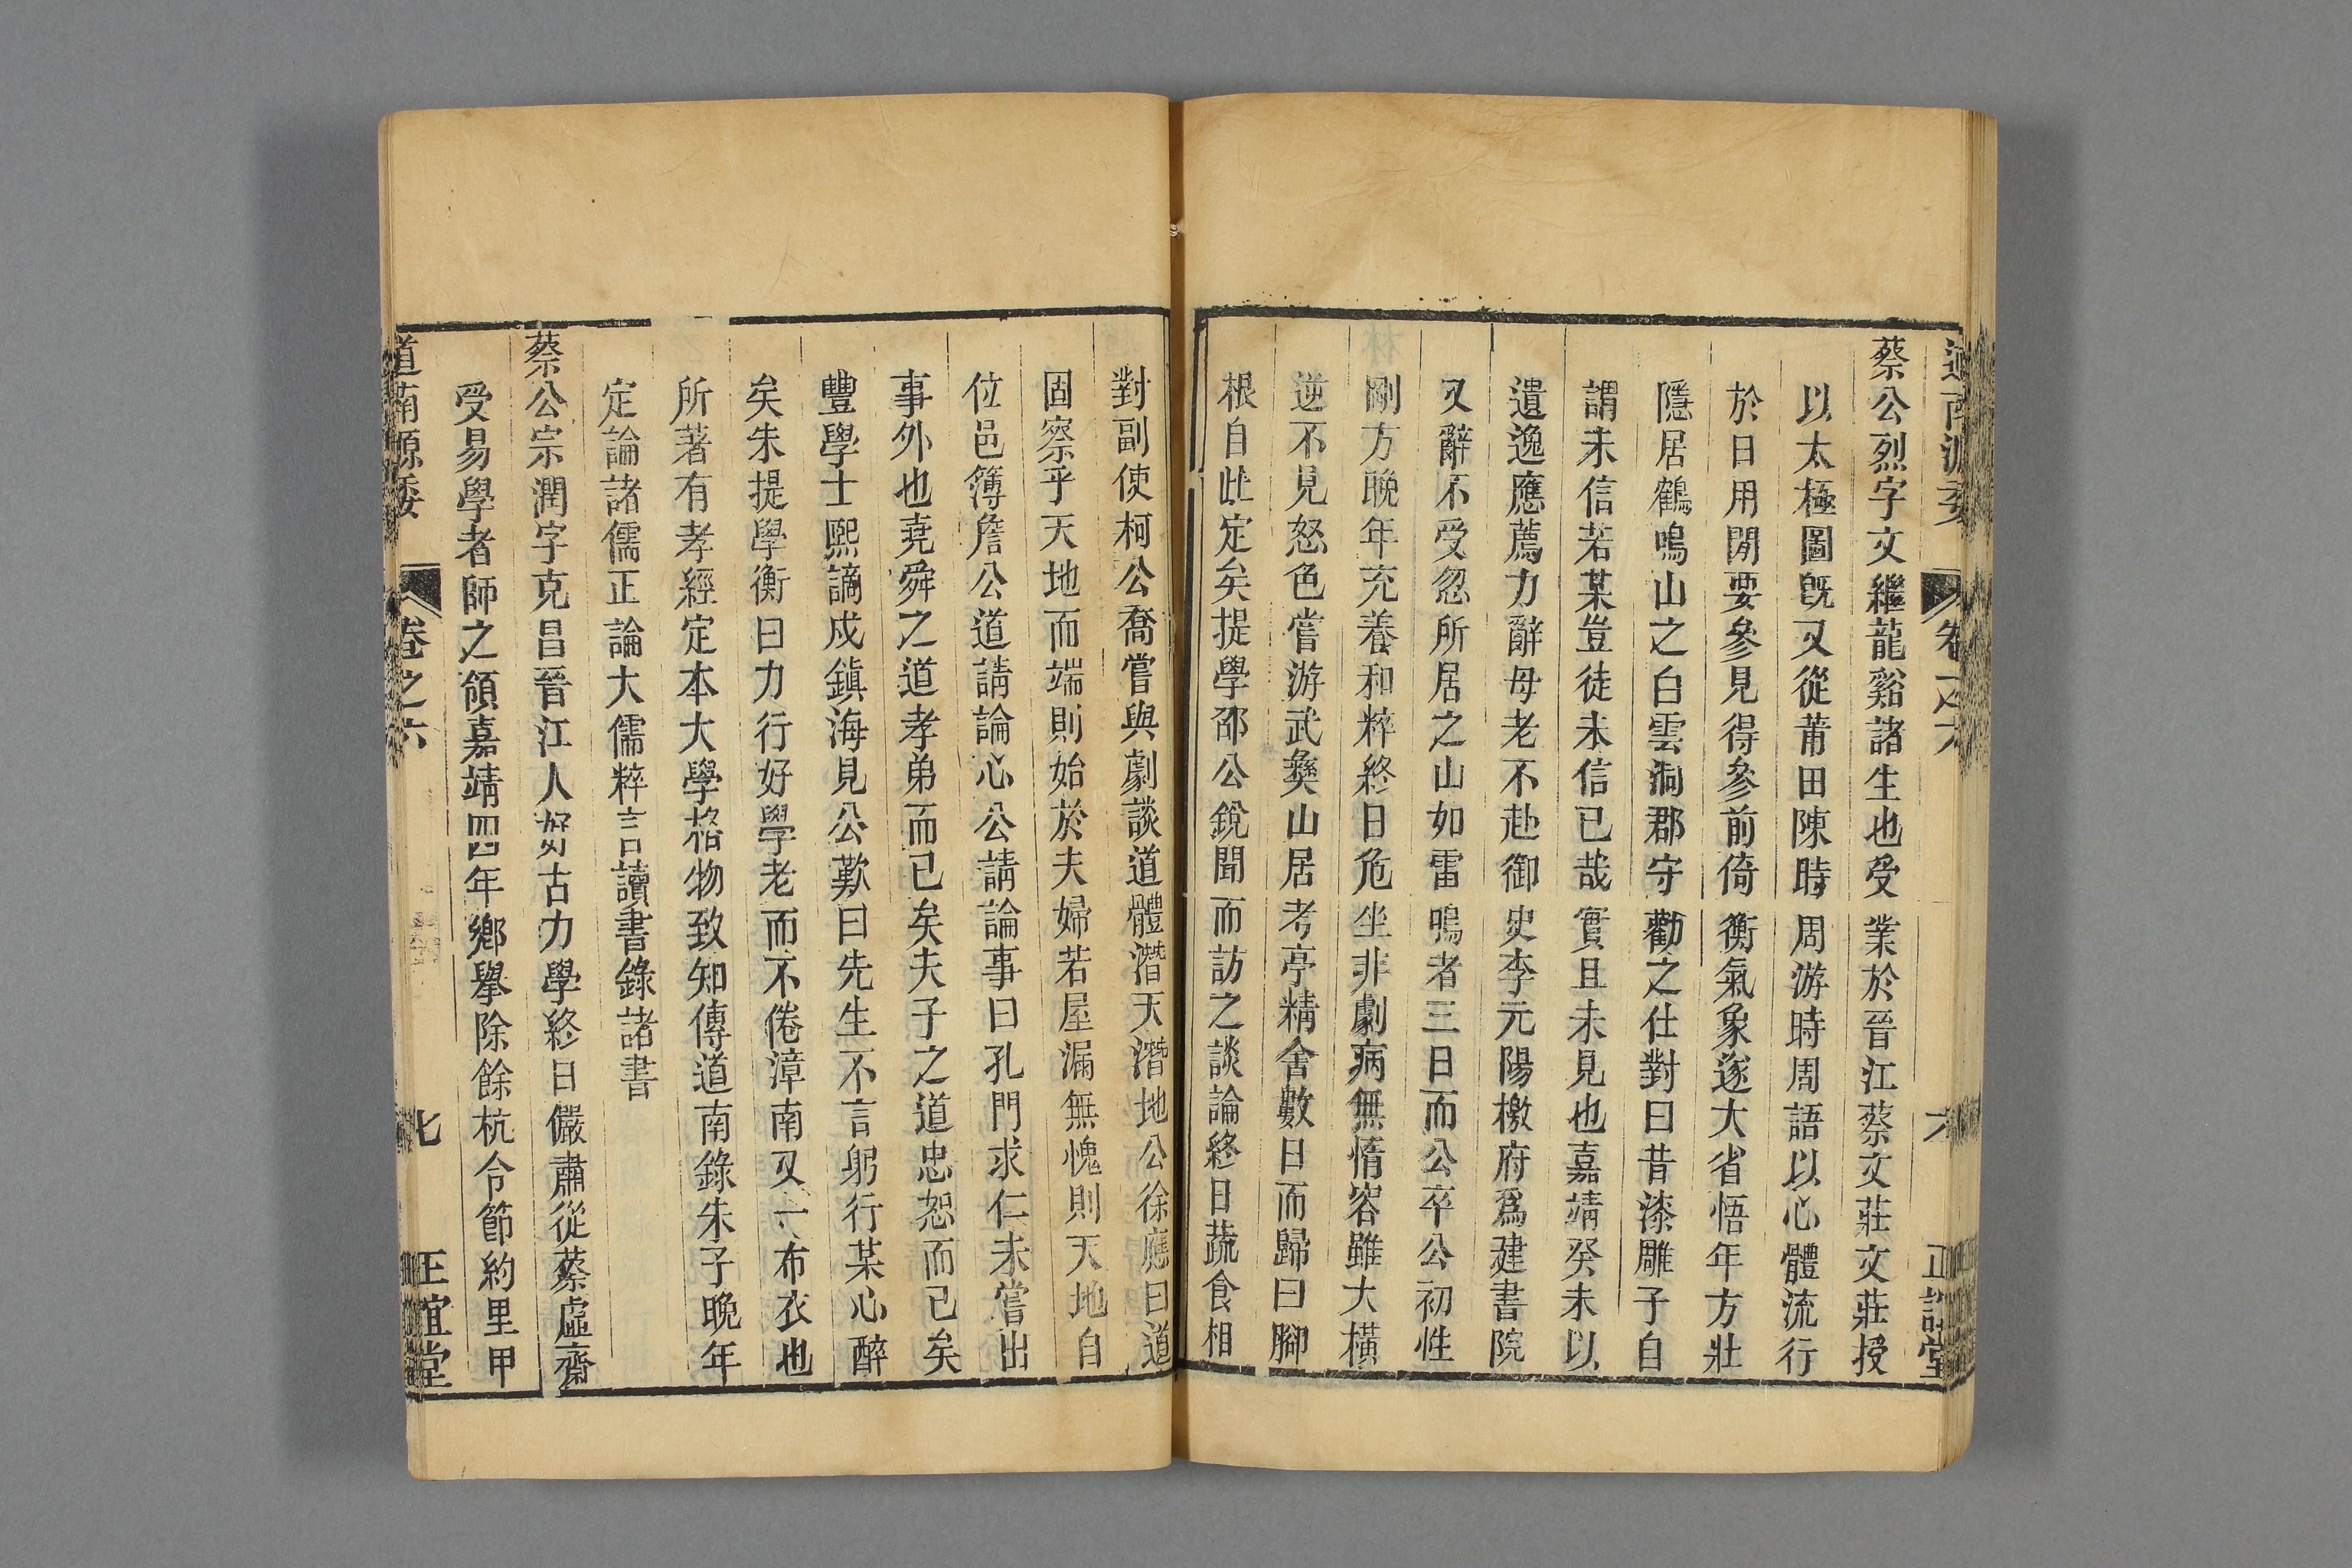 道南源委 卷之六 六 正誼堂
蔡公烈字文繼龍谿諸生也受業於晉江蔡文莊文莊授
以太極圖旣又從莆田陳時周游時周語以心體流行
於日用閒要參見得參前倚衡氣象遂大省悟年方壯
隱居鶴鳴山之白雲洞郡守勸之仕對曰昔漆雕子自
謂未信若某豈徒未信已哉實且未見也嘉靖癸未以
遺逸應薦力辭母老不赴御史李元陽檄府爲建書院
又辭不受忽所居之山如雷鳴者三日而公卒公初性
剛方晚年充養和粹終日危坐非劇病無惰容雖大橫
逆不見怒色嘗游武彝山居考亭精舍數日而歸曰腳
根自此定矣提學邵公銳聞而訪之談論終日蔬食相
對副使柯公喬嘗與劇談道體潛天潛地公徐應曰道
固察乎天地而端則始於夫婦若屋漏無愧則天地自
位邑簿詹公道請論心公請論事曰孔門求仁未嘗出
事外也堯舜之道孝弟而已矣夫子之道忠恕而已矣
豐學士熙謫戍鎮海見公歎曰先生不言躬行某心醉
矣朱提學衡曰力行好學老而不倦漳南又一布衣也
所著有孝經定本大學格物致知傳道南錄朱子晚年
定論諸儒正論大儒粹言讀書錄諸書
蔡公宗潤字克昌晉江人好古力學終日儼肅從蔡虛齋
受易學者師之領嘉靖四年鄉舉除餘杭令節約里甲
道南源委 卷之六 七 正誼堂